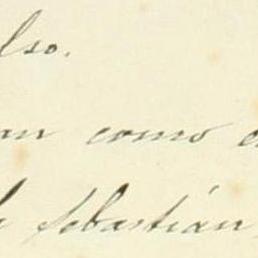 lso.
an como
Sebastián